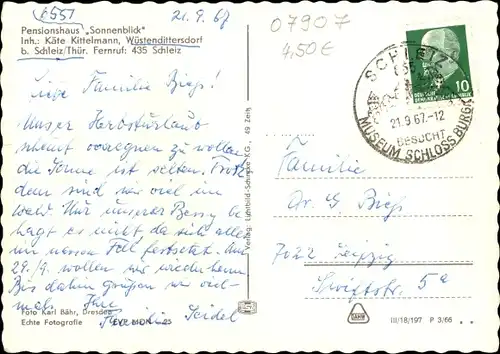 (S55)
21.9.67
07907
4,50€
Pensionshaus „Sonnenblick"
Inh.: Käte Kittelmann, Wüstendittersdorf
b. Schleiz/Thür. Fernruf: 435 Schleiz
Liebe Familie Biehs!
Unser Herbsturlaub
scheint verregnen zu wollen
die Sonne ist selten. Trotz
dem sind wir viel im
Wald. Nur unserer Bessy be
hagt es nicht da sich alles
im nassen Fell festsetzt. Am
29./9. wollen wir wieder heim
Bis dahin grüßen wir viel
mals Ihre
Familie Seidel
Foto Karl Bähr, Dresden
Echte Fotografie EVP MDN
Verlag: Lichtbild-Schincke KG., 49 Zeitz
SCHLEIZ
21.9.67.-12
BESUCHT
MUSEUM SCHLOSS BURGK
10
Familie
Dr. G. Biehs
7022 Leipzig
Swiftstr. 5a
III/18/197 P 3/66